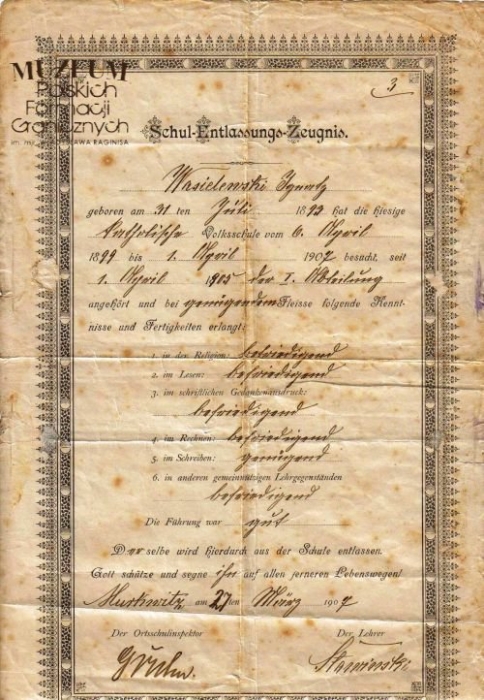 MUZEUM
Polskich
Formacji
Granicznych
3
Schul-Entlassungs-Zeugnis.
Wasielewski Ignatz
geboren am 31 ten Juli 1893 hat die hiesige
katholische Volksschule vom 6. April
1899 bis 1. April 1907 besucht, seit
1. April 1905 der I. Abteilung
angehört und bei genügendem Fleisse folgende Kennt-
nisse und Fertigkeiten erlangt:
1. in der Religion: befriedigend
2. im Lesen: befriedigend
3. im schriftlichen Gedankenausdruck:
befriedigend
4. im Rechnen: befriedigend
5. im Schreiben: genügend
6. in anderen gemeinnützigen Lehrgegenständen
befriedigend
Die Führung war gut
Derselbe wird hierdurch aus der Schule entlassen.
Gott schütze und segne ihn auf allen ferneren Lebenswegen!
am 27ten März 1907
Der Ortsschulinspektor Der Lehrer